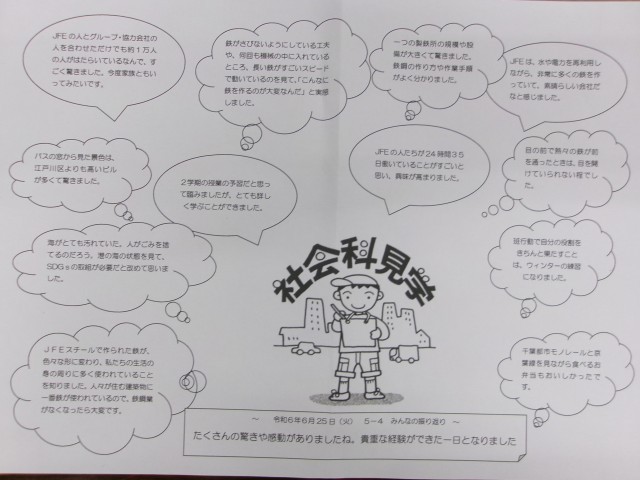 JFEの人とグループ・協力会社の
人を合わせただけでも約1万人
の人がはたらいているなんで、す
ごく驚きました。今度家族ともい
ってみたいです。
鉄がさびないようにしている工夫
や、何回も機械の中に入れている
ところ、長い鉄がすごいスピード
で動いているのを見て、「こんなに
鉄を作るのが大変なんだ」と実感
しました。
一つの製鉄所の規模や設
備が大きくて驚きました。
鉄鋼の作り方や作業手順
がよく分かりました。
JFEは、水や電力を再利用し
ながら、非常に多くの鉄を作
っていて、素晴らしい会社だ
なと感じました。
バスの窓から見た景色は、
江戸川区よりも高いビル
が多くて驚きました。
2学期の授業の予習だと思っ
て臨みましたが、とても詳し
く学ぶことができました。
JFEの人たちが24時間35
日働いていることがすごいと
思い、興味が高まりました。
目の前で熱々の鉄が前
を通ったときは、目を開
けていられない程でし
た。
海がとても汚れていた。人がごみを捨
てるのだろう。港の海の状態を見て、
SDGsの取組が必要だと改めて思いま
した。
班行動で自分の役割を
きちんと果たすこと
は、ウィンターの練習
になりました。
JFEスチールで作られた鉄が、
色々な形に変わり、私たちの生活の
身の周りに多く使われていること
を知りました。人々が住む建築物に
一番鉄が使われているので、鉄鋼業
がなくなったら大変です。
千葉都市モノレールと京
葉線を見ながら食べるお
弁当もおいしかったで
す。
社会科見学
～ 令和6年6月25日（火） 5－4 みんなの振り返り ～
たくさんの驚きや感動がありましたね。貴重な経験ができた一日となりました